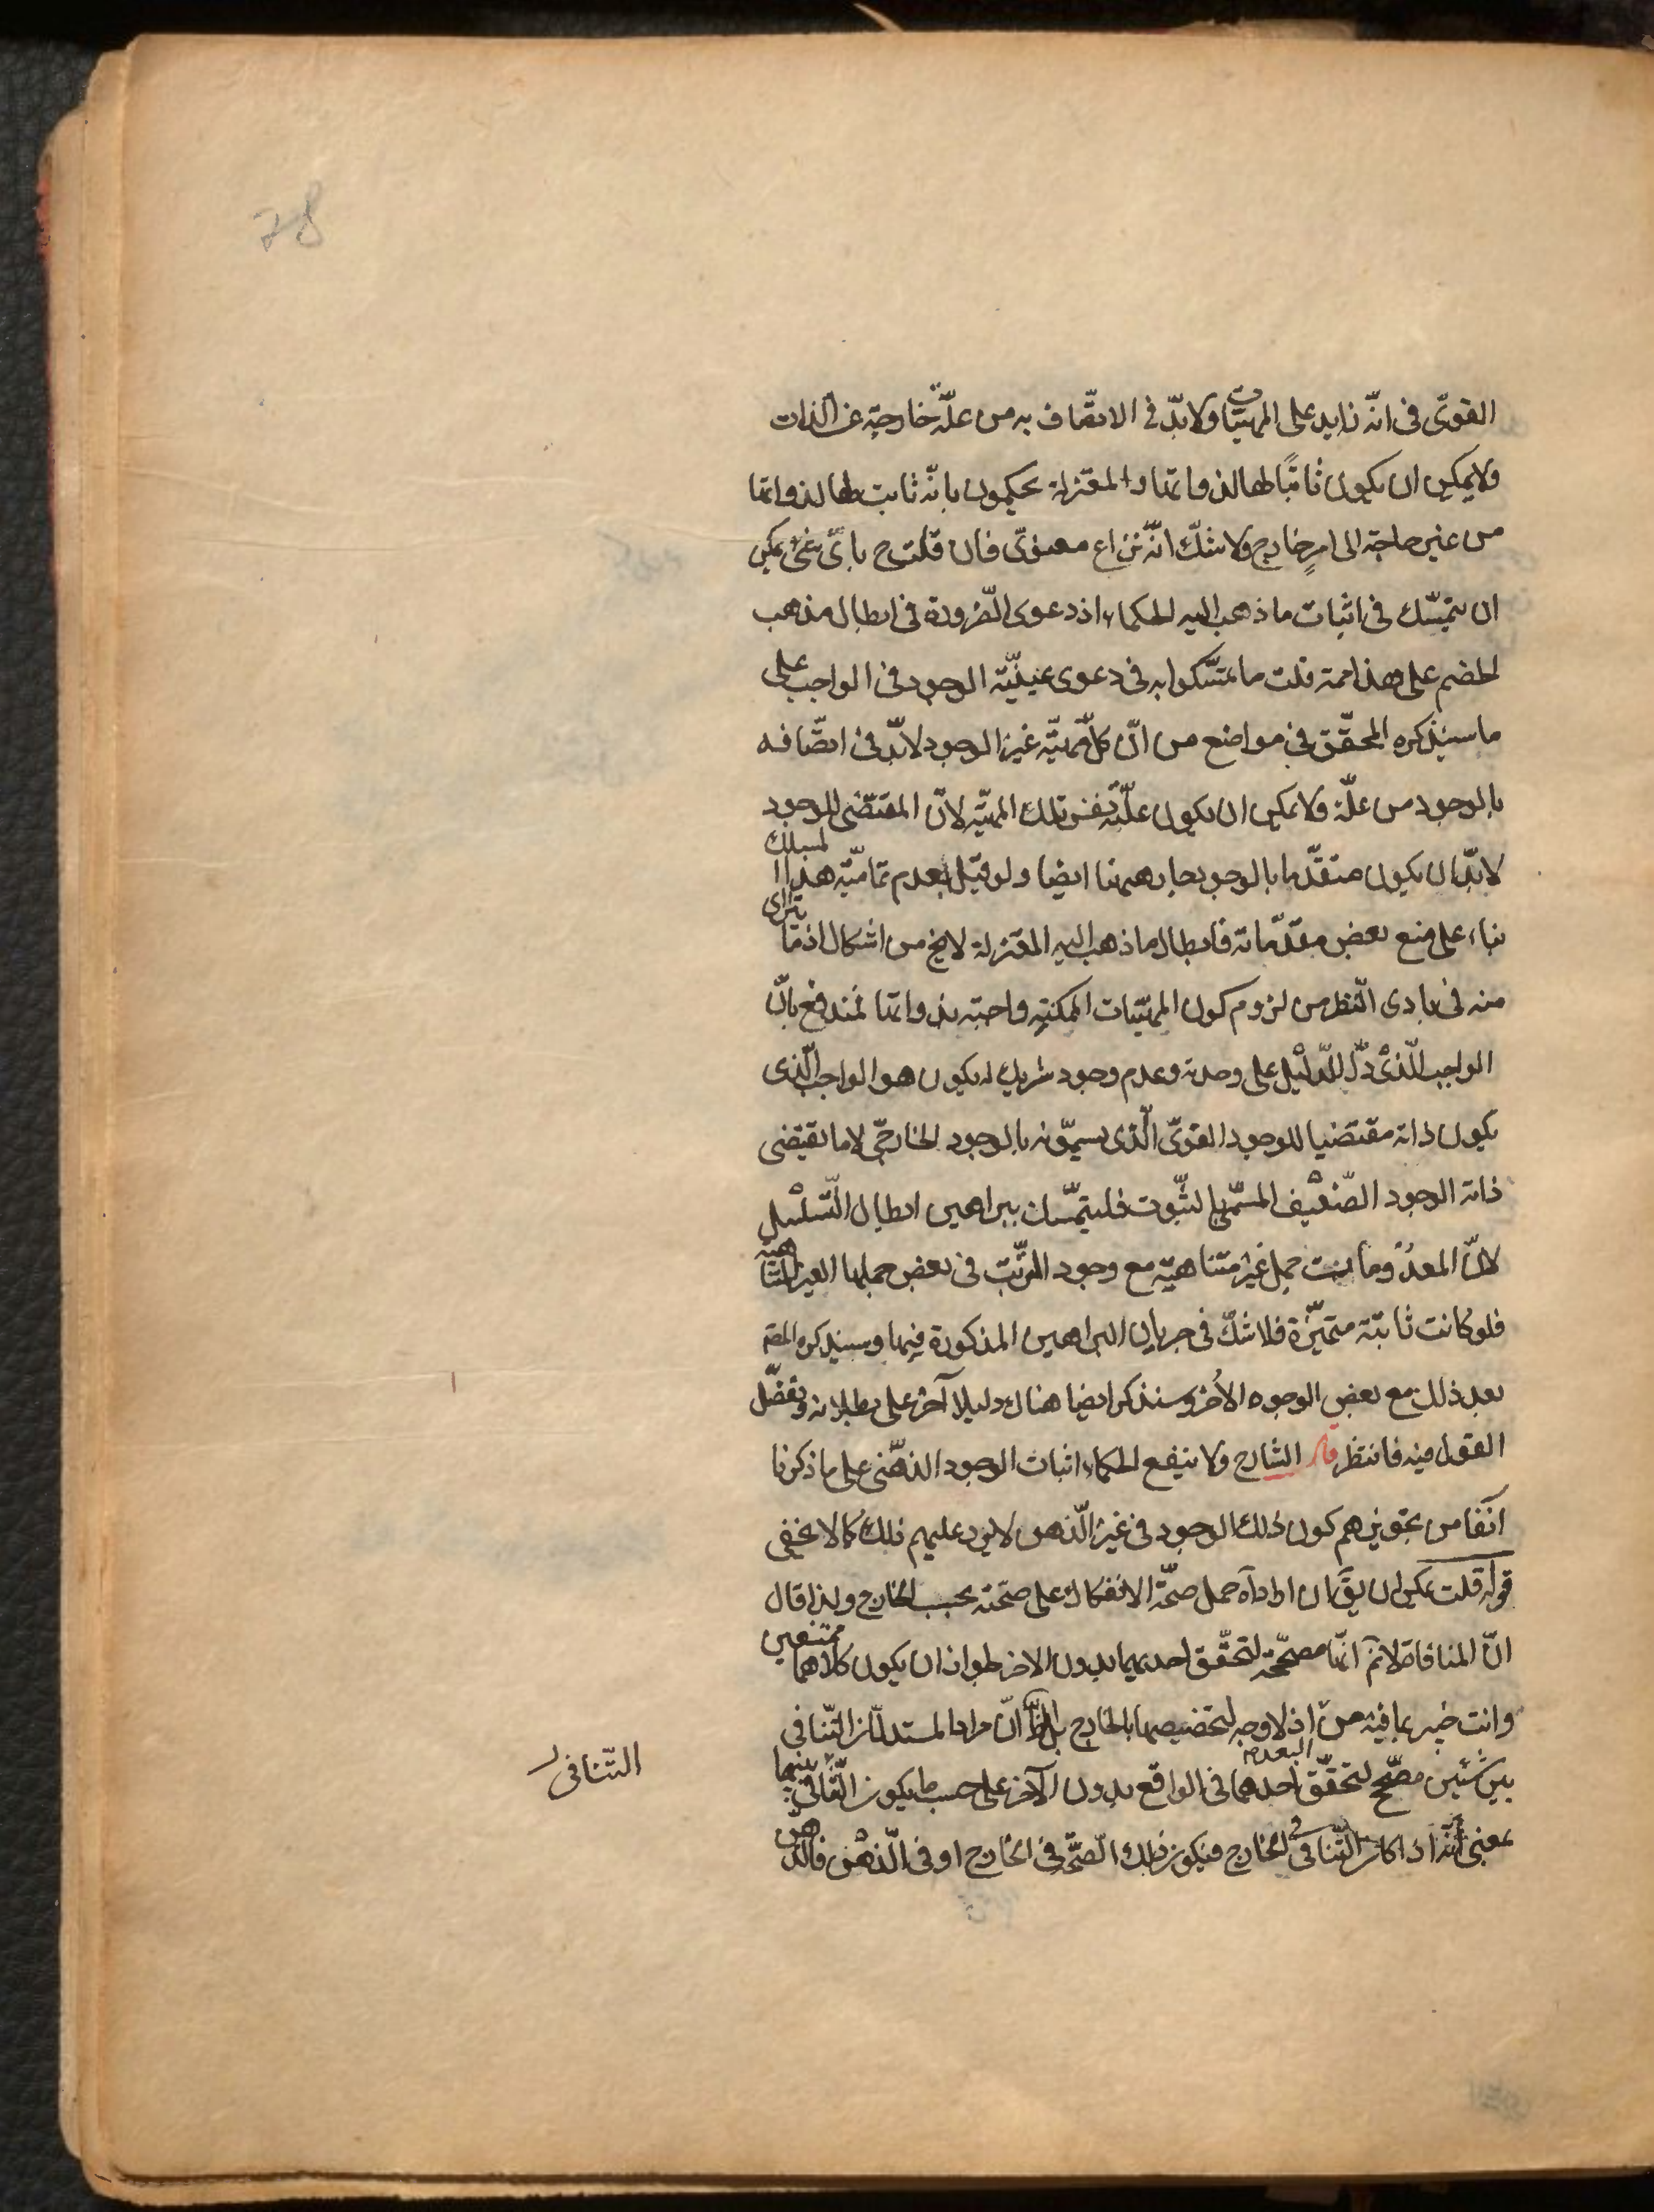 78
القوىّ فى انّه زايد على المهيّات ولابدّ فى الاتّصاف به من علّة خارجيّة عن الذات
ولا يمكن ان يكون ثابتًا لها لذواتها والمعتزلة يحكمون بانّه ثابت لها لذواتها
من غير حاجة الى امرٍ خارج ولا شكّ انّه نزاع معنوىّ فان قلت ح باىّ شئ يمكن
ان يتمسّك فى اثبات ما ذهب اليه الحكماء اذ دعوى الضّرورة فى ابطال مذهب
الخصم على هذا مما قلت ما تمسّكوا به فى دعوى عينيّة الوجود فى الواجب على
ما سيذكره المحقّق فى مواضع من انّ كلّ مهيّة غير الوجود لابدّ فى اتصّافه
بالوجود من علّة ولا يمكن ان يكون علّته نفس تلك المهيّة لانّ المقتضى للوجود
لابدّ ان يكون متقدّما بالوجود جار هيهنا ايضا ولو قيل بعدم تماميّة هذا المسلك
بناء على منع بعض مقدّماته فابطال ما ذهب اليه المعتزلة لا يخ من اشكال اذ ما يترا ای
منه فى بادى النّظر من لزوم كون المهيّات الممكنة واجبة بذواتها مندفع بانّ
الواجب الّذىْ دلّ الدّليْل على وحدته وعدم وجود شريك له يكون هو الواجب الّذى
يكون ذاته مقتضيا للوجود القوىّ الّذى يسمّونه بالوجود الخارجىّ لا ما يقتضى
ذاته الوجود الضّعيْف المسمّى بالثّبوت فليتمسّك ببراهين ابطال التّسلسْل
لانّ المعدُوْمات جمل غيْر متناهيّة مع وجود التّرتّب فى بعض جملها الغير المتناهية
فلو كانت ثابتة متميّزة فلا شكّ فى جريان البراهين المذكورة فيها وسيذكره المصّ
بعد ذلك مع بعض الوجوه الأُخر وسنذكر ايضا هناك دليلا آخر على بطلانه ونفصّل
القول فيه فانتظر قال الشارح ولا ينفع الحكماء اثبات الوجود الذهْنى على ما ذكرنا
آنفا من تجويزهم كون ذلك الوجود فى غيْر الذّهن لا يرد عليهم ذلك كما لا يخفى
قوله قلت يمكن ان يقَ ان اراداه حمل صحّة الانفكاك على صحّته بحسب الخارج ولذا قال
انّ المنافاة لانمَ انّها مصحّحة لتحقّق احديهما بدون الاخر لجواز ان يكون كلاهما ممتنعين
وانت خبير بما فيه من اذ لا وجه لتخصيصها بالخارج بل الظّ انّ مراد المستدلّ انّ التّنافى
بين شيْئين مصحّح لتحقّق احدهما فى الواقع بدون الآخر على حسب ما يكون التّنافى بينهما
البعد
التّنافى
بمعنى أنّه اذا كان التّنافى فى الخارج فيكون ذلك الصّحّة فى الخارج او فى الذّهْن فالذّهن